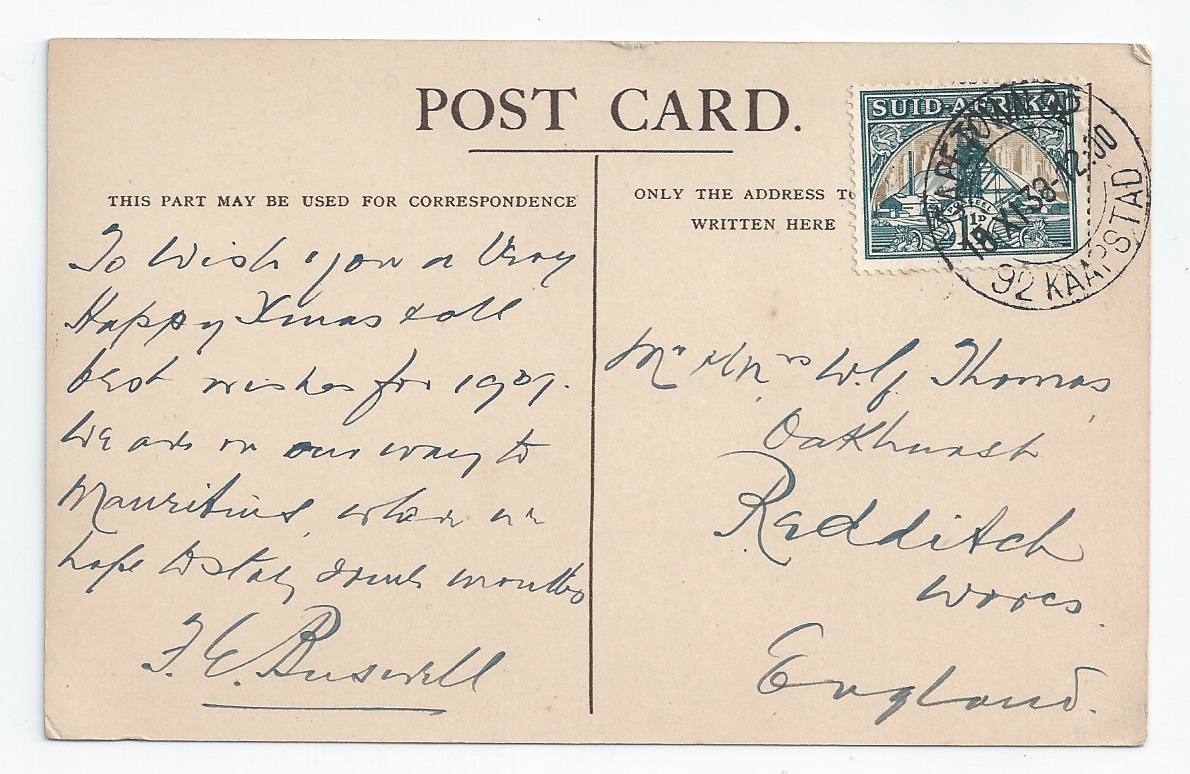 POST CARD.
THIS PART MAY BE USED FOR CORRESPONDENCE
ONLY THE ADDRESS TO
WRITTEN HERE
SUID-AFRIKA
POSSEEL
1½D
CAPE TOWN
18 XI 38-12:00
92 KAAPSTAD
To Wish you a Very
Happy Xmas & all
best wishes for 1939.
We are on our way to
Mauritius where we
hope to stay some months
F. E. Buswell
Mr & Mrs W. G. Thomas
Oakhurst
Redditch
Worcs.
England.